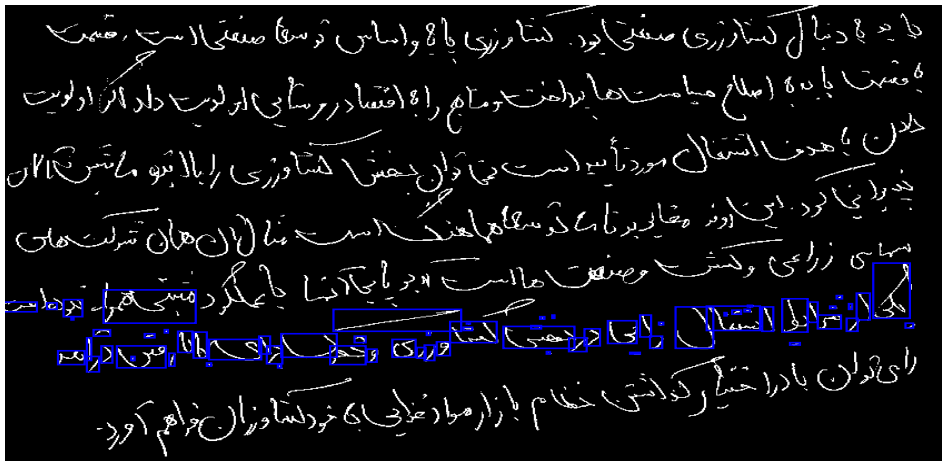 باید به دنبال کشاورزی صنعتی بود. کشاورزی پایه و اساس توسعه صنعتی است، قسمت
به قسمت باید به اصلاح سیاست‌ها پرداخت و منابع را به اقتصاد روستایی اولویت داد اگر اولویت
کلان با هدف اشتغال مورد تأیید است می‌توان بخش کشاورزی را با
کرد. این روند مغایر برنامه توسعه هماهنگ است مثال آن همان شرکت‌های
سهامی زراعی و کشت و صنعت‌ها است که برپایی آنها با عملکرد مثبتی همراه نبوده است
یکی از اشتغال زایی در بخش کشاورزی و کمک برای بالا رفتن درآمد
را می‌توان با در اختیار گذاشتن نظام بازار مواد غذایی به خود کشاورزان فراهم آورد.